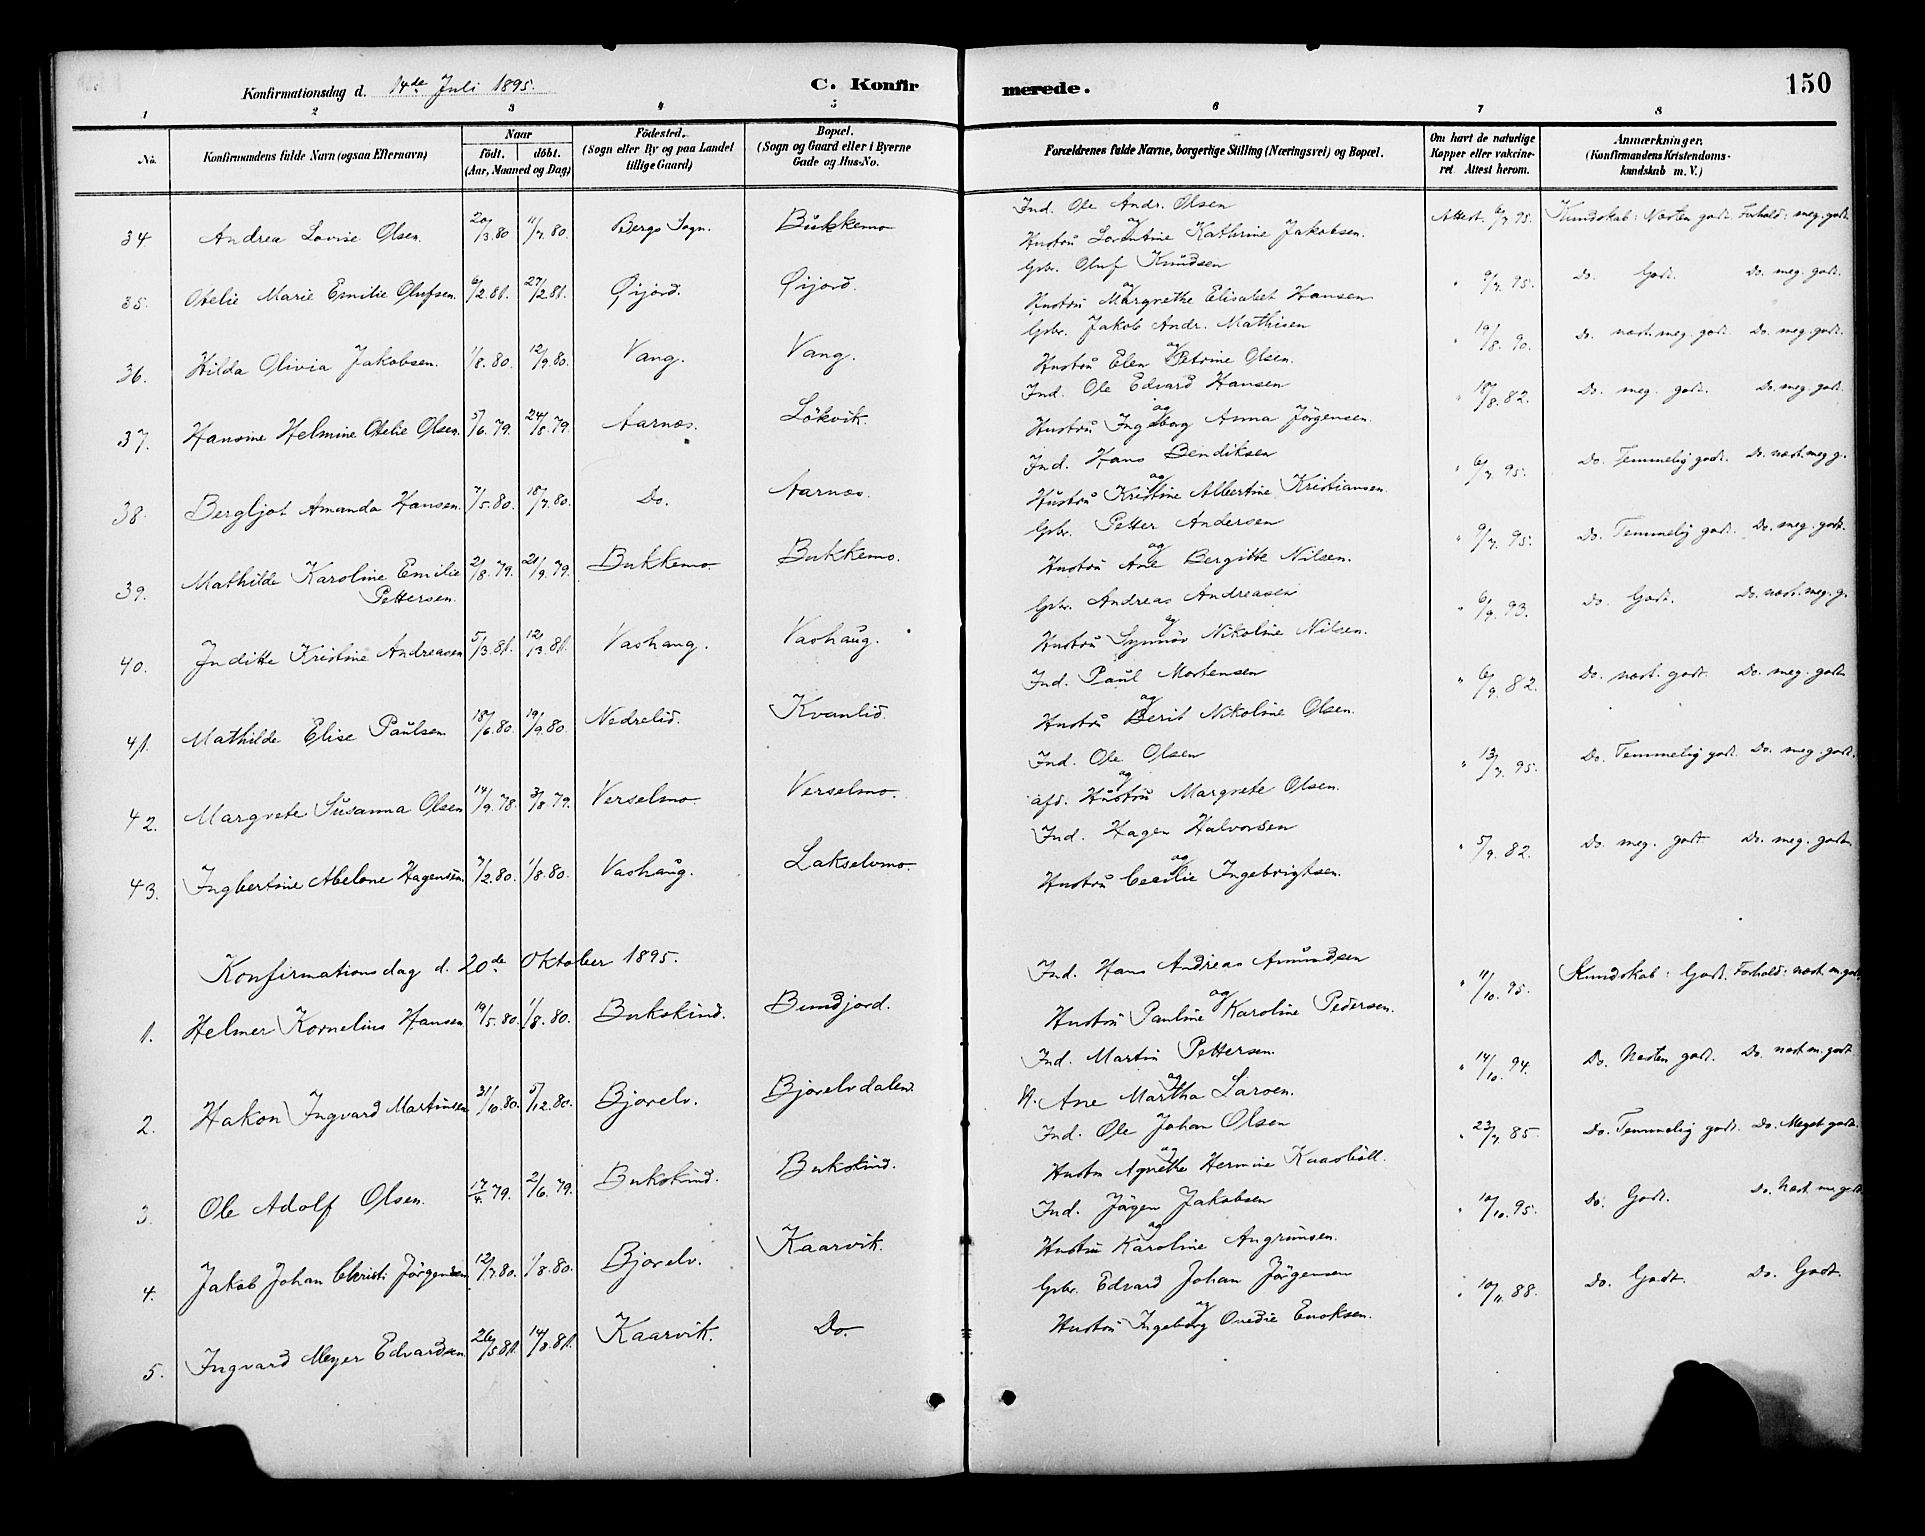 Konfirmationsdag d. 14de Juli 1895. C. Konfirmerede. 150
1 2 3 4 5 6 7 8
No. Konfirmandens fulde Navn (ogsaa Efternavn) Naar födt. döbt. (Aar, Maaned og Dag) Födested. (Sogn eller By og paa Landet tillige Gaard) Bopæl. (Sogn og Gaard eller i Byerne Gade og Hus-No. Forældrenes fulde Navne, borgerlige Stilling (Næringsvei) og Bopæl. Om havt de naturlige Kopper eller vakcineret Attest herom. Anmærkninger. (Konfirmandens Kristendomskundskab m. V.)
34 Andrea Lovise Olsen. 20/3.80 11/7.80. Bergs Sogn. Bukkemo Ind. Ole Andr. Olsen og Hustru Lorentine Kathrine Jakobsen. Attest. 6/7 95. Kundskab: Næsten godt. Forhold: meg. godt.
35. Otelie Marie Emilie Olufsen. 6/2.81. 27/2.81. Öijord. Öijord. Gbr. Oluf Knudsen og Hustru Margrethe Elisabet Hansen " 9/7. 95. Do. Godt. Do. meg. godt.
36. Hilda Olivia Jakobsen. 1/8.80. 12/9.80. Vang. Vang. Gbr. Jakob Andr. Mathisen og Hustru Elen Petrine Olsen. " 19/8. 90. Do. næst. meg. godt. Do. meg. godt.
37. Hansine Helmine Otelie Olsen. 5/6.79. 24/8.79. Aarnes. Lökvik. Ind. Ole Edvard Hansen og Hustru Ingeborg Anna Jörgensen. " 18/8.82. Do. meg. godt. Do. meg. godt.
38. Bergljot Amanda Hansen. 7/5.80. 18/7.80. Do. Aarnes. Ind. Hans Bendiksen og Hustru Kristine Albertine Kristiansen. " 6/7. 95. Do. Temmelig godt. Do. næst. meg g.
39. Mathilde Karoline Emilie Pettersen. 2/8.79. 21/9.79. Bukkemo. Bukkemo. Gbr. Petter Andersen og Hustru Ane Bergitte Nilsen. " 9/7. 95. Do. Temmelig godt. Do. meg. godt.
40. Juditte Kristine Andreasen 5/3.81. 12/13.81. Vashaug. Vashaug. Gbr. Andreas Andreasen og Hustru Synnöv Nikoline Nilsen. " 6/9. 93. Do. Godt. Do. næst. meg. g.
41. Mathilde Elise Paulsen 18/6.80. 19/9.80. Nedrelid. Kvanlid. Ind. Paul Mortensen og Hustru Berit Nikoline Olsen. " 6/9. 82. Do. næst. godt. Do. meg. godt.
42. Margrete Susanna Olsen 14/9.78. 3/8.79. Verselmo. Verselmo. Ind. Ole Olsen og afd. Hustru Margrete Olsen. " 13/7. 95. Do. Temmelig godt. Do. meg. godt.
43. Ingbertine Abelone Hagensen. 7/2.80. 1/8.80. Vashaug. Lakselvmo. Ind. Hagen Halvorsen og Hustru Cecilie Ingebrigtsen. " 5/9. 82. Do. meg. godt. Do. meg. godt.
Konfirmationsdag d. 20de Oktober 1895.
1. Helmer Kornelius Hansen 19/5.80. 1/8.80. Bukskind. Bundjord. Ind. Hans Andreas Amundsen og Hustru Pauline Karoline Pedersen. " 11/10. 95. Kundskab: Godt. Forhold: næst. m. godt.
2. Hakon Ingvard Martinsen 31/10.80. 5/12.80. Bjorelv. Bjorelvdalen. Ind. Martin Pettersen. og H. Ane Martha Larsen. " 14/10. 94. Do. Næsten godt. Do. næst m. godt
3. Ole Adolf Olsen. 17/4. 79. 2/6. 79. Bukskind. Bukskind. Ind. Ole Johan Olsen og Hustru Agnethe Hermine Kaasböll. " 23/7 85. Do. Temmelig godt. Do. Meget godt.
4. Jakob Johan Christi Jörgensen 12/7.80. 1/8.80. Bjorelv. Kaarvik. Ind. Jörgen Jakobsen og Hustru Karoline Angrimsen. " 10/10. 95. Do. Godt. Do. Næst. m. godt
5. Ingvard Meyer Edvardsen. 26/5.81. 14/8.81. Kaarvik. Do. Gbr. Edvard Johan Jörgensen og Hustru Ingeborg Ovedie Enoksen. " 10/11. 88. Do. Godt. Do. Godt.